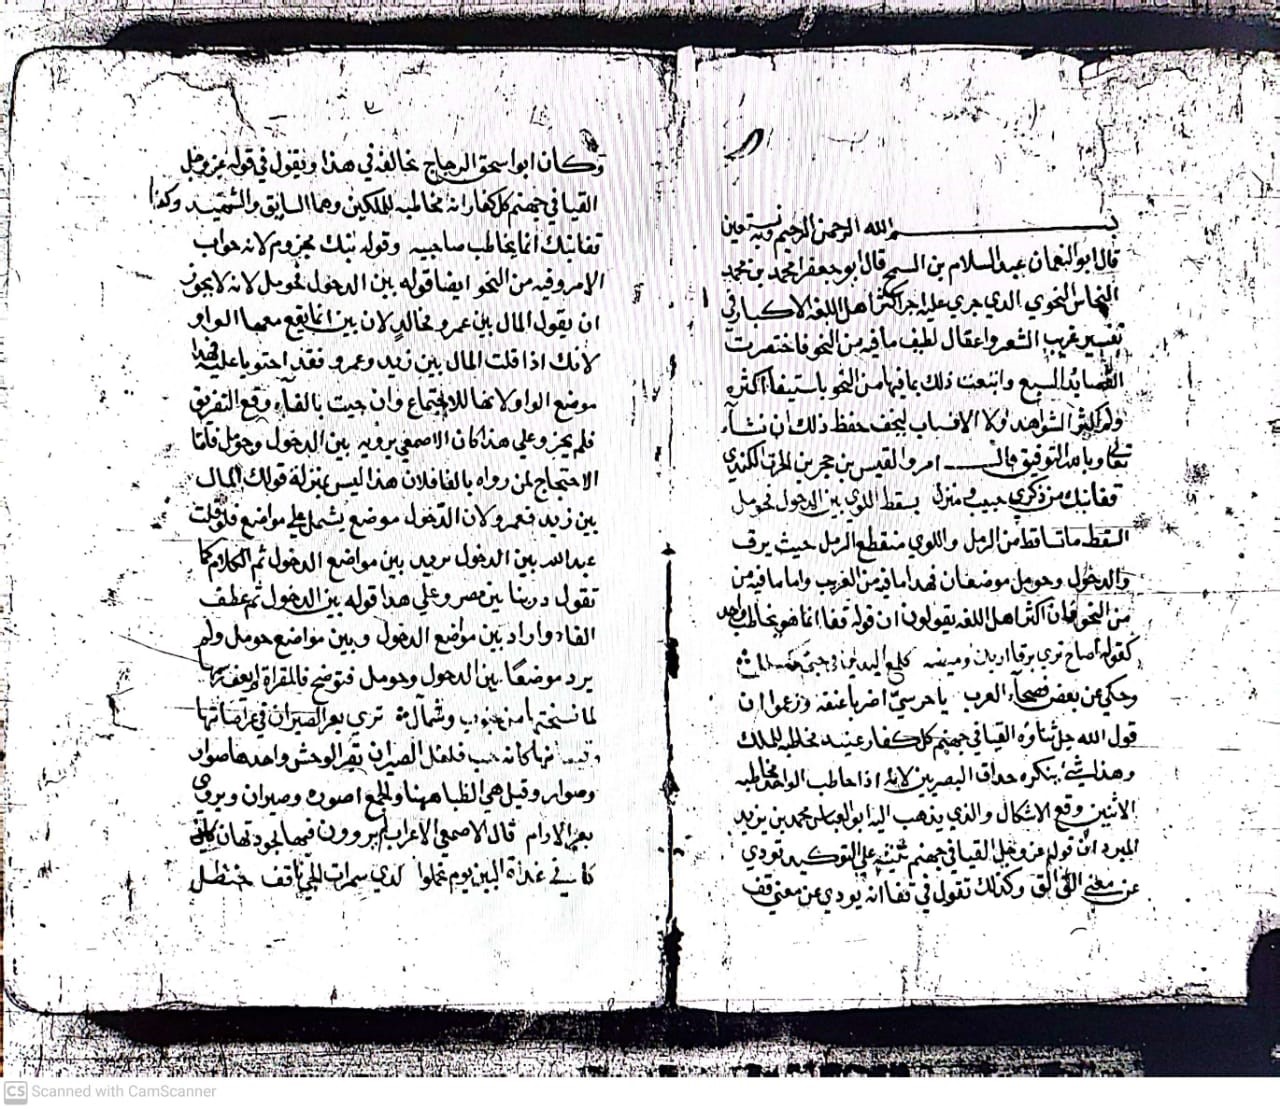 بسم الله الرحمن الرحيم وبه نستعين
قال ابو النعمان عبد السلام بن السمح قال ابو جعفر احمد بن محمد
النحاس النحوي الذي جري عليه امر اكثر اهل اللغه الاكبار في
تفسير غريب الشعر واغفال لطيف ما فيه من النحو فاختصرت
القصايد السبع واتبعت ذلك بما فيها من النحو باستيفا اكثره
ولم اكثر الشواهد ولا الانساب ليخف حفظ ذلك ان شآء
تعالي وبالله التوفيق قال امرو القيس بن حجر بن الحرث الكندي
قفا نبك من ذكري حبيب ومنزل بسقط اللوي بين الدخول فحومل
السقط ما تساقط من الرمل واللوي منقطع الرمل حيث يرق
والدخول وحومل موضعان فهذا ما فيه من الغريب واما ما فيه من
من النحو فان اكثر اهل اللغه يقولون ان قوله قفا انما هو يخاطب واحد
كقوله اصاح تري برقا اريك وميضه كلمع اليدين في حبي
وحكي عن بعض فصحآء العرب يا حرسيّ اضربا عنقه وزعموا ان
قول الله جل ثناؤه القيا في جهنم كل كفار عنيد مخاطبه للملك
وهذا شئ ينكره حذاق البصريين لانه اذا خاطب الواحد مخاطبه
الاثنين وقع الاشكال والذي يذهب اليه ابو العباس محمد بن يزيد
المبرد ان قوله عز وجل القيا في جهنم تثنيه علي التوكيد تودي
عن معني الق الق وكذلك نقول في قفا انه يودي عن معني قف
وكان ابو اسحق الزجاج يخالفه في هذا ويقول في قوله عز وجل
القيا في جهنم كل كفار انه مخاطبه للملكين وهما السايق والشهيد وكذا
قفا نبك انما يخاطب صاحبيه وقوله نبك مجزوم لانه جواب
الامر وفيه من النحو ايضا قوله بين الدخول فحومل لانه لا يجوز
ان يقول المال بين عمرو فخالد لان بين انما يقع معها الواو
لانك اذا قلت المال بين زيد وعمرو فقد احتويا عليه فهذا
موضع الواو لانها للاجتماع وان جيت بالفآء وقع التفريق
فلم يجز وعلي هذا كان الاصمعي يرويه بين الدخول وحومل فاما
الاحتجاج لمن رواه بالفا فلان هذا ليس بمنزلة قولك المال
بين زيد فعمرو لان الدخول موضع يشتمل علي مواضع فلو قلت
عبد الله بين الدخول تريد بين مواضع الدخول ثم الكلام كما
تقول دربنا بين مصر وعلي هذا قوله بين الدخول ثم عطف
الفاء واراد بين مواضع الدخول وبين مواضع حومل ولم
يرد موضعًا بين الدخول وحومل فتوضح فالمقراة لم يعف رسمها
لما نسجتها من جنوب وشمال تري بعر الصيران في عرصاتها
وقيعانها كانه حب فلفل الصيران بقر الوحش واحدها صوار
وصوار وقيل هي الظبا ههنا والجمع اصوره وصيران ويروي
بعر الارام قال الاصمعي الاعراب يروون فيها لجودتهان
كاني غداة البين يوم تحملوا لدي سمرات الحي ناقف حنظل
Scanned with CamScanner